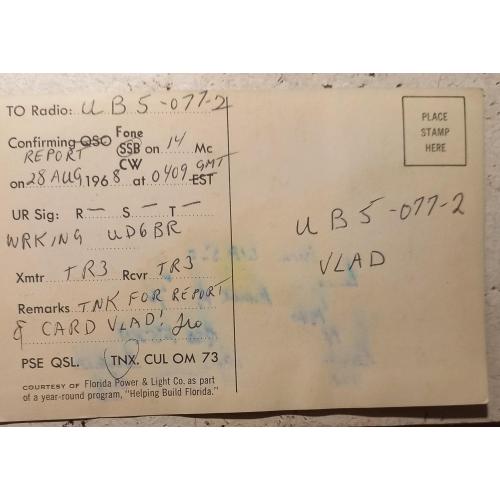 TO Radio: UB5-077-2
Fone
Confirming QSO SSB on 14 Mc
REPORT CW GMT
on 28 AUG 1968 at 0409 EST
UR Sig: R — S — T —
WRKING UD6BR
Xmtr TR3 Rcvr TR3
Remarks TNK FOR REPORT
& CARD VLAD!
PSE QSL. TNX. CUL OM 73
COURTESY OF Florida Power & Light Co. as part
of a year-round program, "Helping Build Florida."
PLACE
STAMP
HERE
UB5-077-2
VLAD